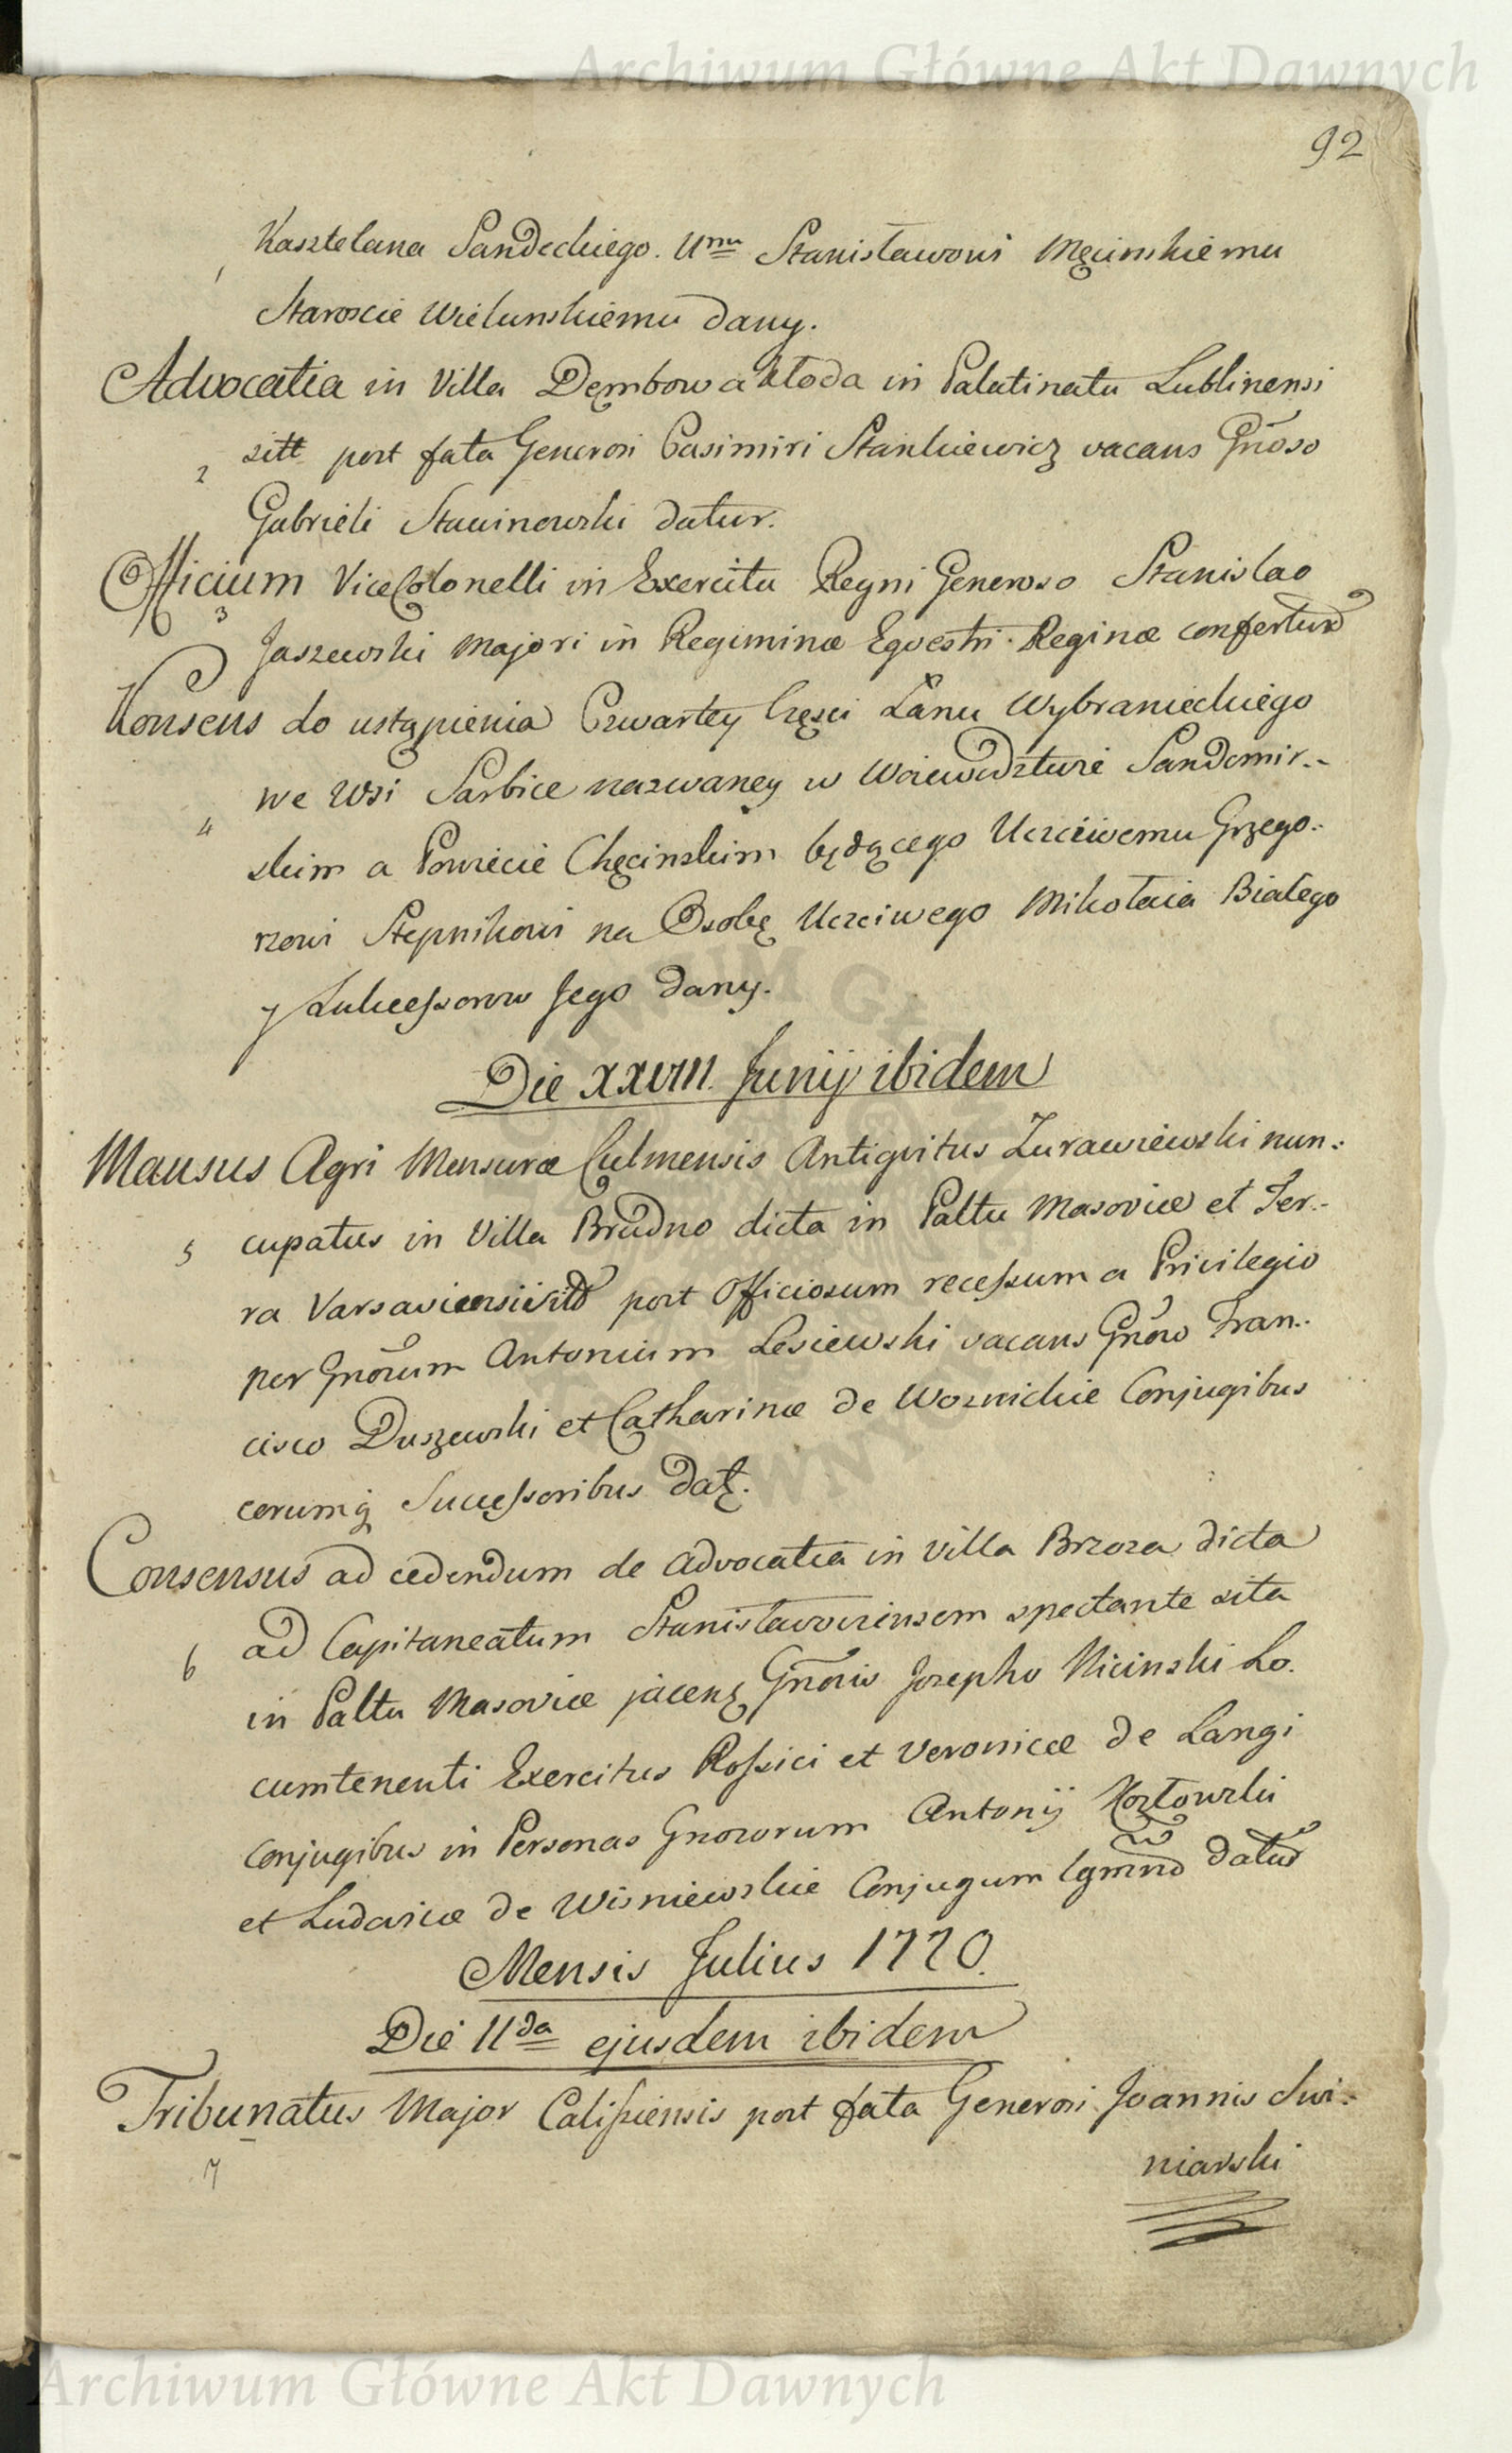 Archiwum Główne Akt Dawnych
92
Kasztelana Sandeckiego. Umu Stanisławowi Męcinskiemu
1
Staroscie Wielunskiemu dany.
Advocatia in Villa Dembowa Kłoda in Palatinatu Lublinensi
2 sitt post fata Generosi Casimiri Stankiewicz vacans Gnoso
Gabrieli Stawinowski datur.
Officium ViceColonelli in Exercitu Regni Generoso Stanislao
3 Jaszewski Majori in Regiminæ Eqvestri Reginæ confertur
Konsens do ustąpienia Czwartey Częsci Łanu Wybranieckiego
we Wsi Sarbice nazwaney w Woiewodztwie Sandomir-
4
skim a Powiecie Chęcinskim będącego Uczciwemu Grzego-
rzowi Stępnikowi na Osobę Uczciwego Mikołaia Białego
y Sukcessorow Jego dany.
Die XXVIII Junij ibidem
Mansus Agri Mensuræ Culmensis Antiqvitus Zurawiewski nun-
5 cupatus in Villa Brudno dicta in Paltu Masoviæ et Ter-
ra Varsaviensi sitt post Officiosum recessum a Privilegio
per Gnorum Antonium Lesiewski vacans Gnoro Fran-
cisco Duszewski et Catharinæ de Woznickie Conjugibus
eorumq Successoribus dat.
Consensus ad cedendum de Advocatia in Villa Brzoza dicta
ad Capitaneatum Stanisławoviensem spectante sita
6
in Paltu Masoviæ jacen Gnoris Josepho Kicinski Lo-
cumtenenti Exercitus Rossici et Veronicæ de Langi
Conjugibus in Personas Gnororum Antonij Kozłowski
et Ludovicæ de Wisniewskie Conjugum datur
Mensis Julius 1770.
Die IIda ejusdem ibidem
Tribunatus Major Calissiensis post fata Generosi Joannis Swi-
7
niarski
Archiwum Główne Akt Dawnych